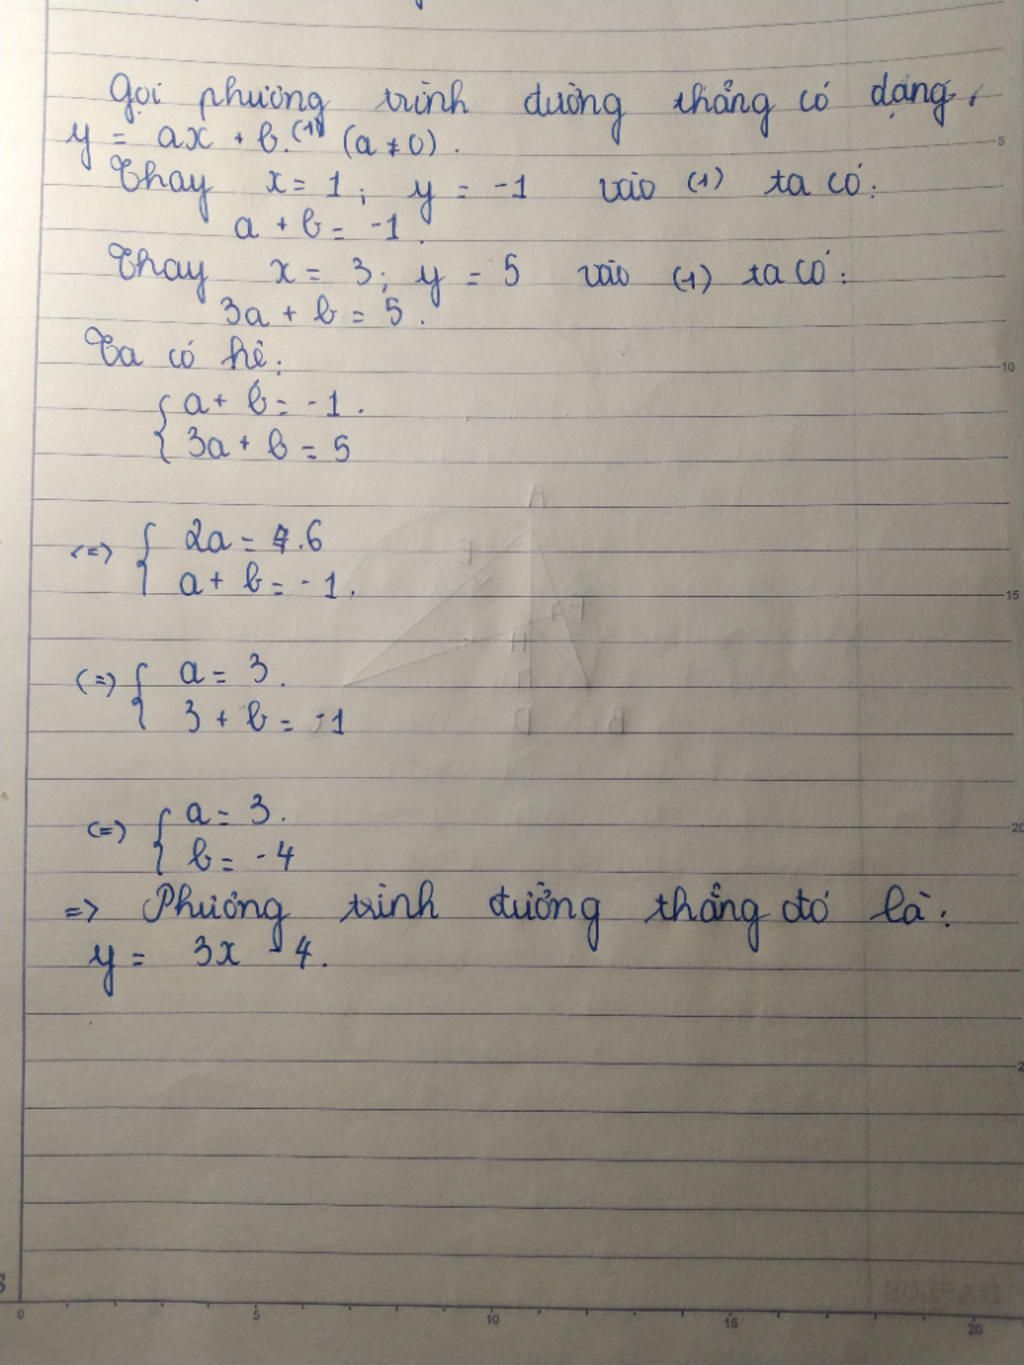 Gọi phương trình đường thẳng có dạng,
y = ax + b. (1) (a ≠ 0).
Thay x = 1; y = -1 vào (1) ta có:
a + b = -1.
Thay x = 3; y = 5 vào (1) ta có:
3a + b = 5.
Ta có hệ:
{ a + b = -1.
3a + b = 5
(=) { 2a = 6
a + b = -1.
(=) { a = 3.
3 + b = -1
(=) { a = 3.
b = -4
=> Phương trình đường thẳng đó là:
y = 3x - 4.
5
10
15
20
0 5 10 15 20